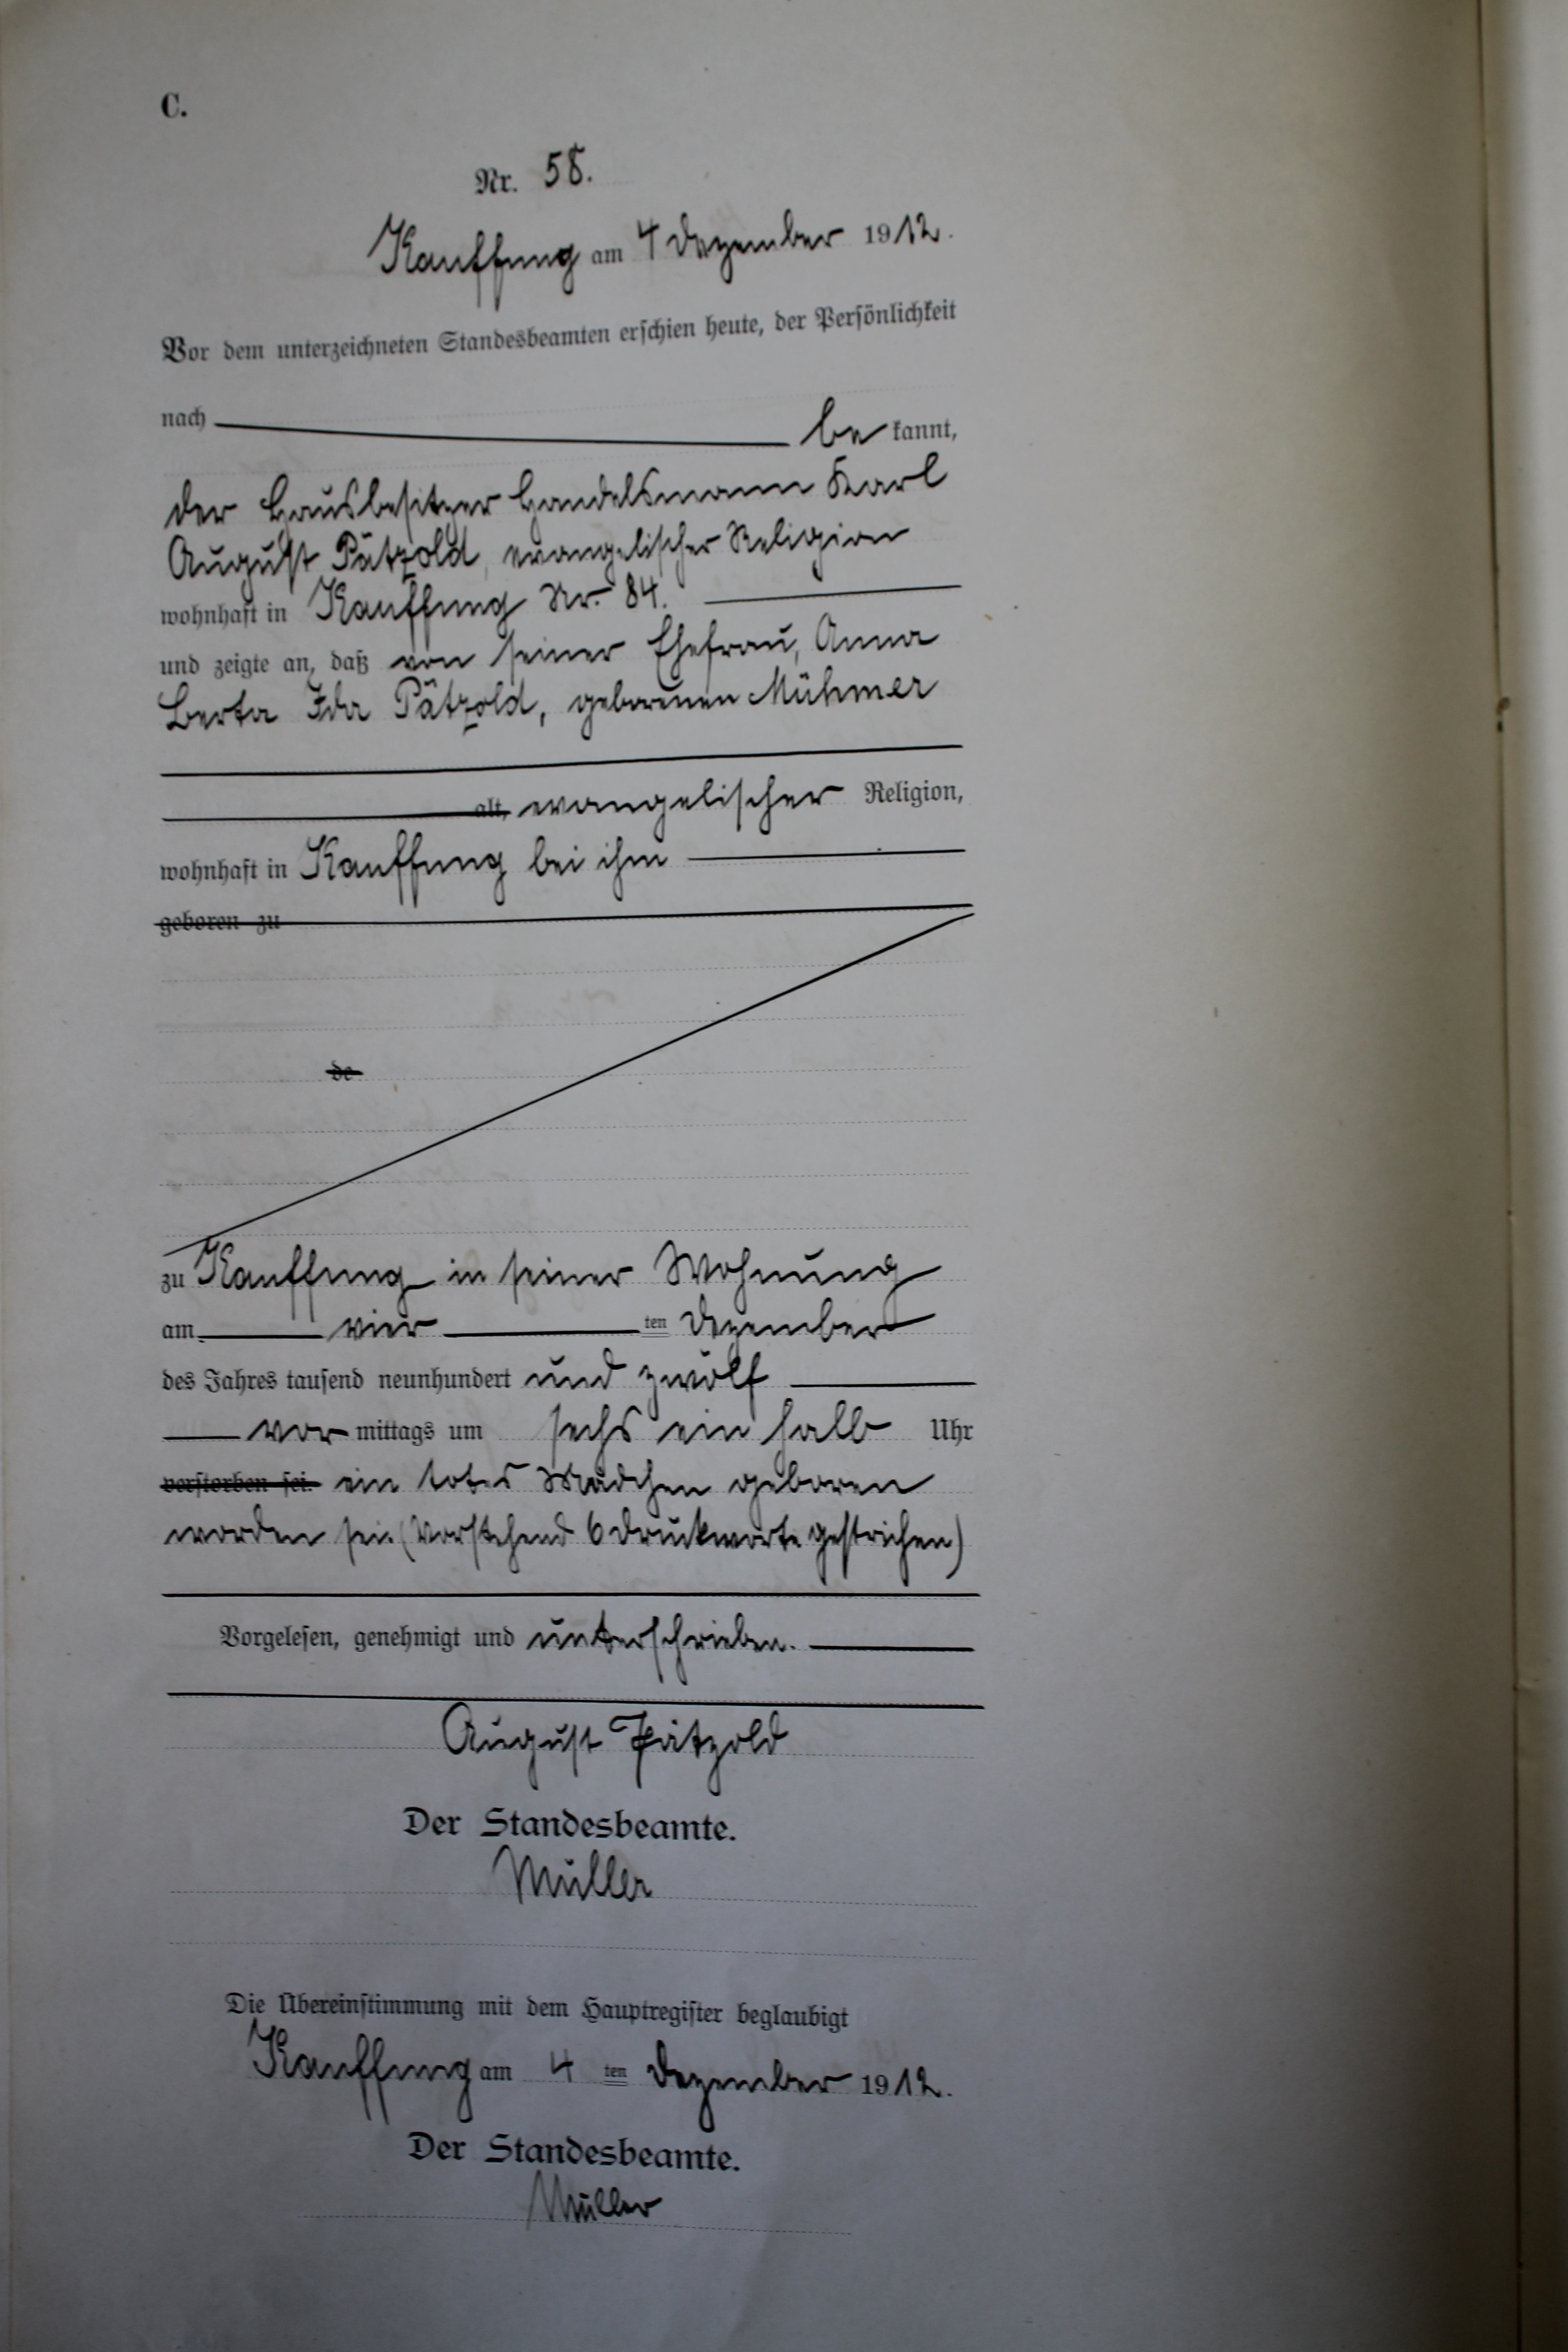 C.
Nr. 58.
Kauffung am 4 Dezember 1912.
Vor dem unterzeichneten Standesbeamten erschien heute, der Persönlichkeit
nach be kannt,
der Hausbesitzer Handelsmann Karl
August Pätzold, evangelischer Religion
wohnhaft in Kauffung Nr. 84.
und zeigte an, daß von seiner Ehefrau, Anna
Berta Ida Pätzold, geborenen Mühmer
alt, evangelischer Religion,
wohnhaft in Kauffung bei ihm
geboren zu
de
zu Kauffung in seiner Wohnung
am vier ten Dezember
des Jahres tausend neunhundert und zwölf
vor mittags um sechs ein halb Uhr
verstorben sei. ein totes Mädchen geboren
worden sei. (Vorstehend 6 Druckworte gestrichen)
Vorgelesen, genehmigt und unterschrieben.
August Pätzold
Der Standesbeamte.
Müller
Die Übereinstimmung mit dem Hauptregister beglaubigt
Kauffung am 4 ten Dezember 1912.
Der Standesbeamte.
Müller